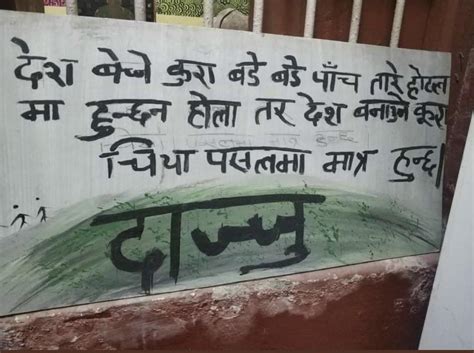 देश बेच्ने कुरा बडे बडे पाँच तारे होटल
मा हुन्छन होला तर देश बनाउने कुरा
चिया पसलमा मात्र हुन्छ।
दाज्जु